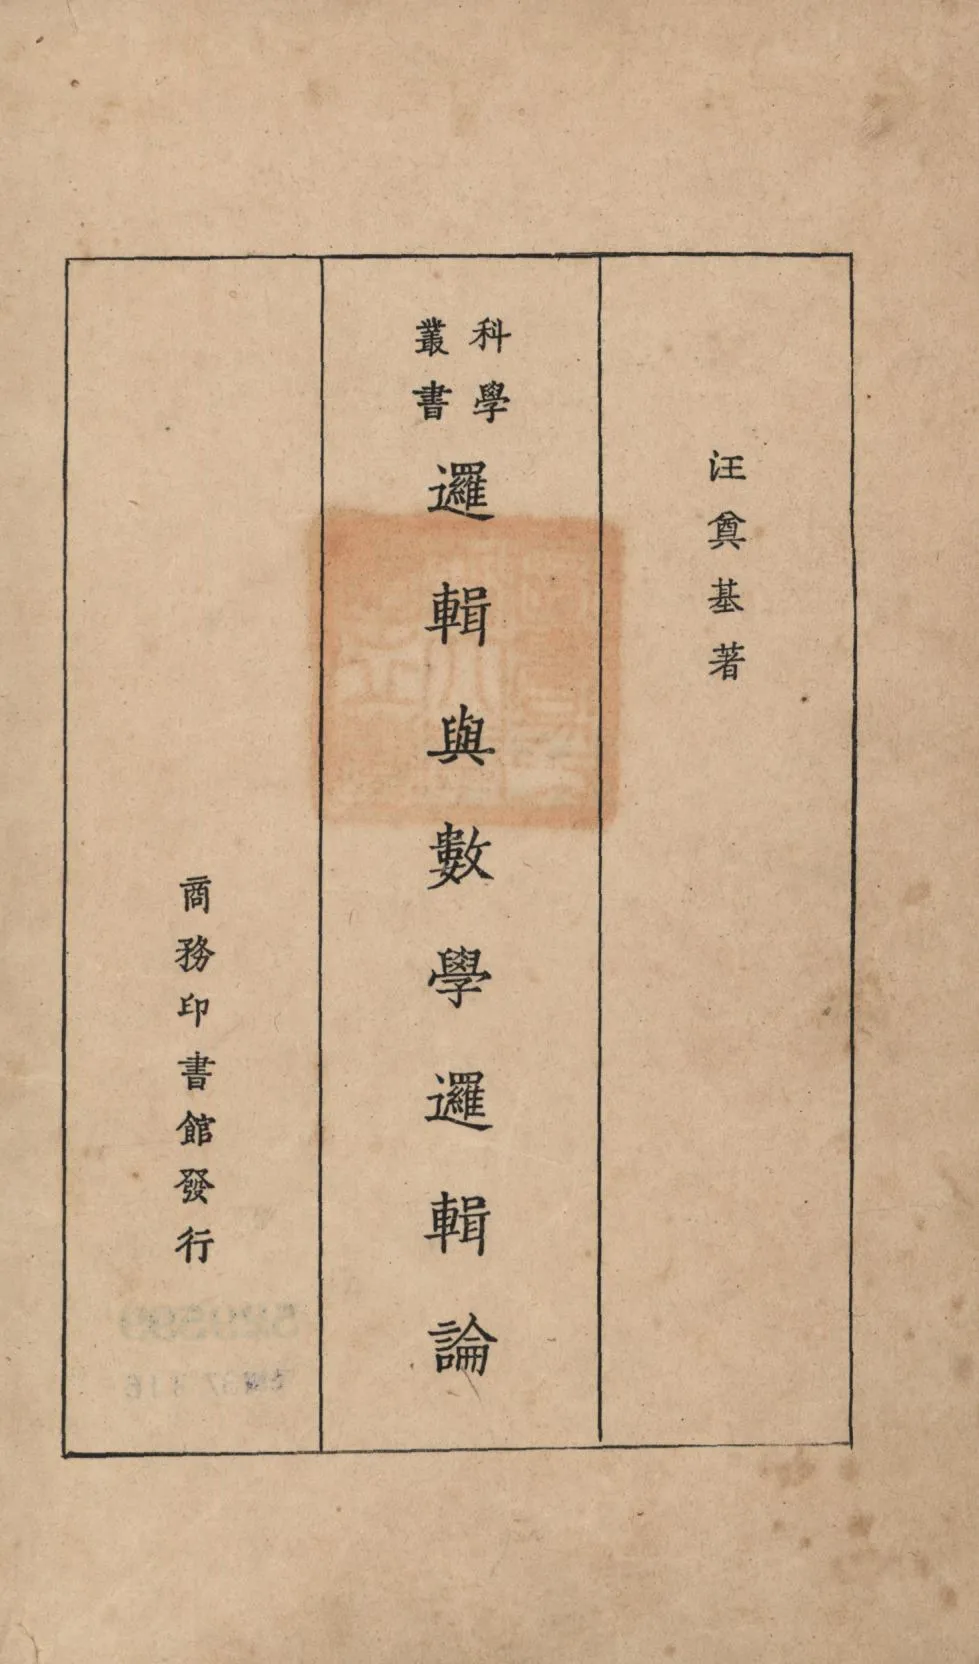 汪奠基著
科學
叢書
邏輯與數學邏輯論
商務印書館發行